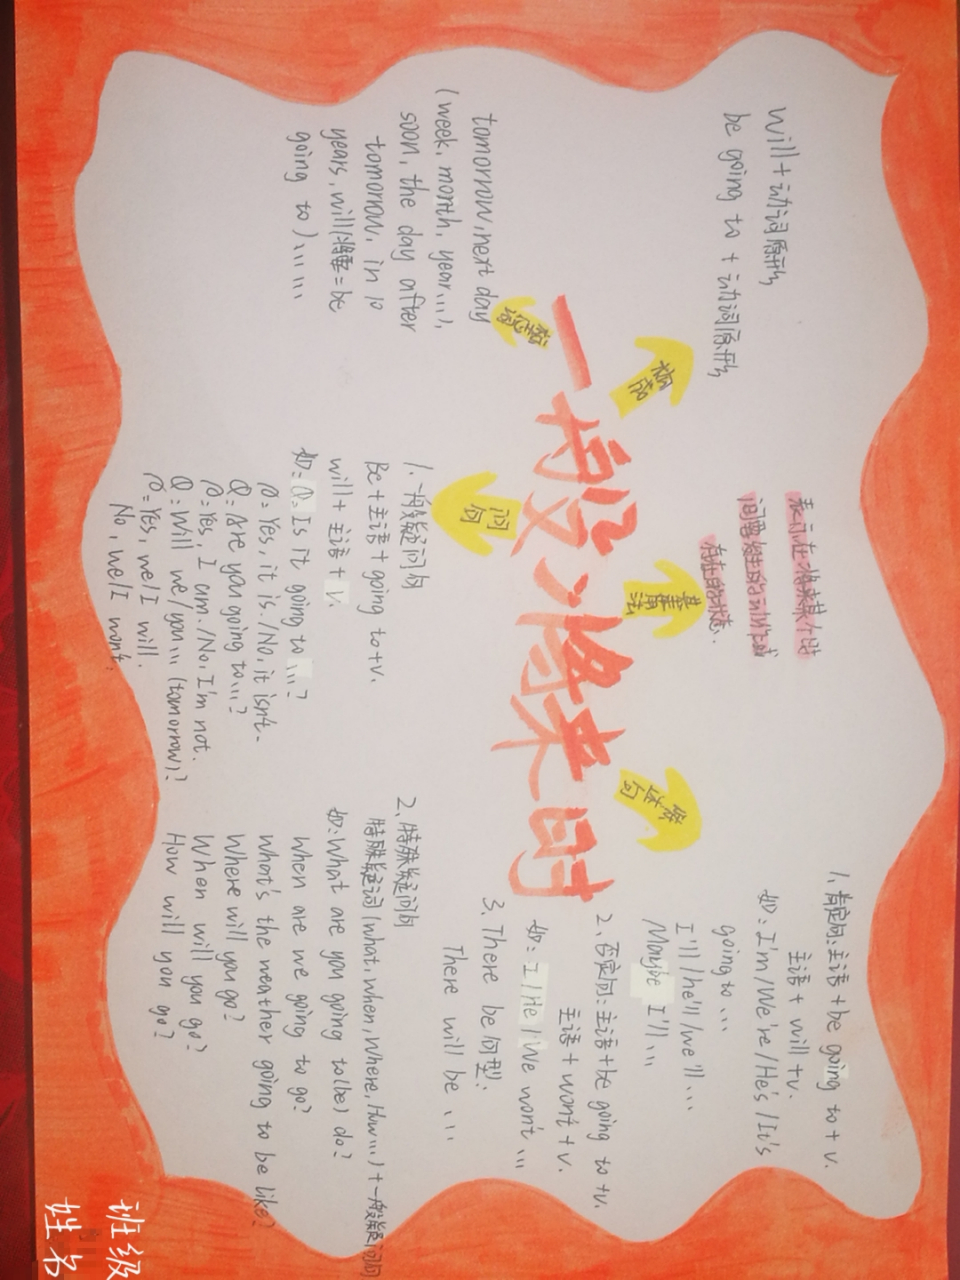 一般将来时
构成
will+动词原形
be going to + 动词原形
基本用法
表示在将来某个时
间要发生的动作或
存在的状态.
陈述句
1. 肯定句:主语+be going to+v.
主语+will+v.
如:I'm/We're/He's/It's
going to...
I'll/he'll/we'll...
/Maybe I'll...
2. 否定句:主语+be going to+v.
主语+won't+v.
如:I/He/We won't...
3. There be句型:
There will be ...
标志词
tomorrow, next day
(week, month, year...),
soon, the day after
tomorrow, in 10
years, will(将要=be
going to)......
问句
1. 一般疑问句
Be+主语+going to+v.
will+主语+v.
如:Q:Is it going to...?
P:Yes, it is./No, it isn't.
Q:Are you going to...?
P:Yes, I am./No, I'm not.
Q:Will we/you...(tomorrow)?
P:Yes, we/I will.
No, we/I won't.
2. 特殊疑问句
特殊疑问词(what, when, where, How...)+一般疑问句
如:What are you going to(be) do?
When are we going to go?
What's the weather going to be like?
Where will you go?
When will you go?
How will you go?
班级
姓名